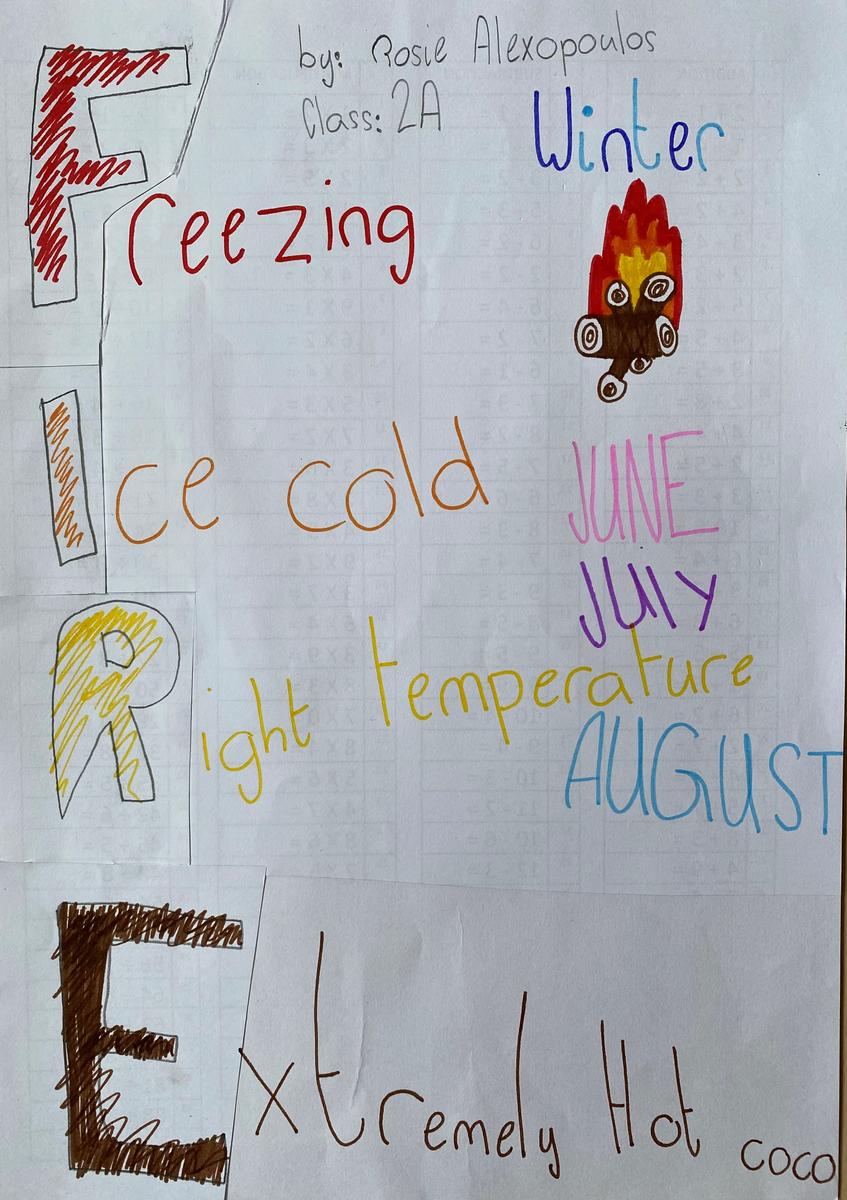 by: Rosie Alexopoulos
Class: 2A
Winter
Freezing
Ice cold
JUNE
JUly
Right temperature
AUGUST
Extremely Hot coco